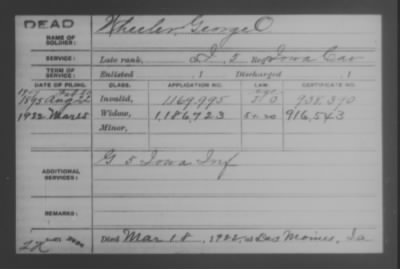 DEAD
NAME OF SOLDIER: Wheeler, George O.
SERVICE: Late rank, Co. I, 5 Reg Iowa Cav
TERM OF SERVICE: Enlisted , 1 Discharged , 1
DATE OF FILING. CLASS. APPLICATION NO. LAW. CERTIFICATE NO.
1895 Aug 22 Invalid, 1169,995 938,390
1922 Mar 25 Widow, 1,186,723 916,543
Minor,
ADDITIONAL SERVICES: G 5 Iowa Inf
REMARKS:
Died Mar 18, 1922, at Des Moines, Ia